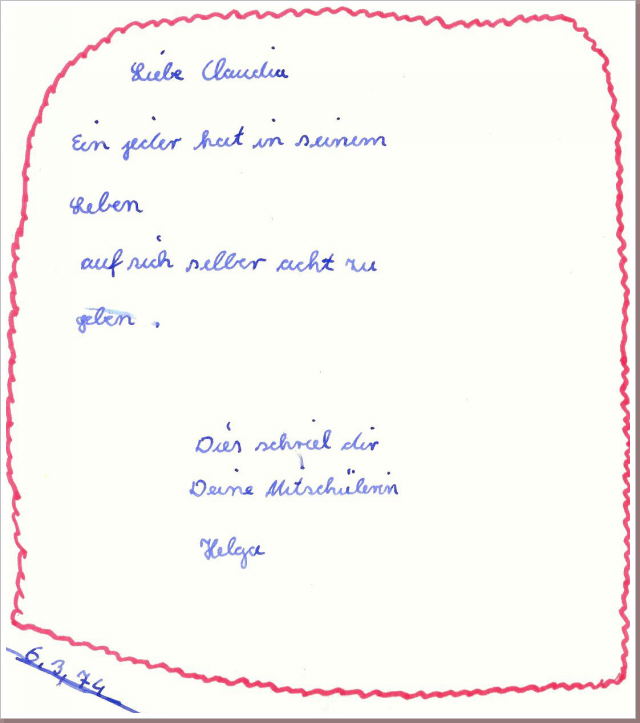 Liebe Claudia
Ein jeder hat in seinem
Leben
auf sich selber acht zu
geben .
Dies schrieb dir
Deine Mitschülerin
Helga
6,3,74